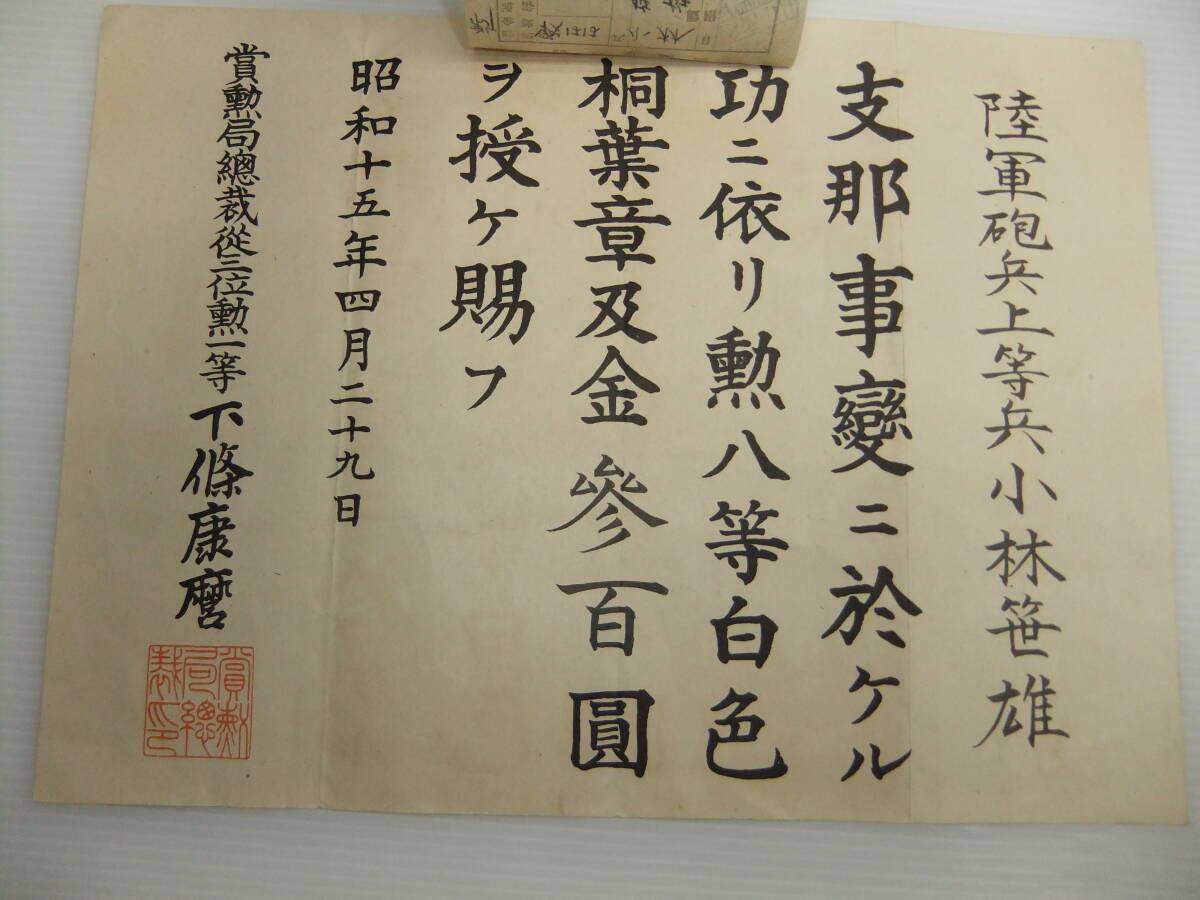 陸軍砲兵上等兵小林笹雄
支那事變ニ於ケル
功ニ依リ勲八等白色
桐葉章及金參百圓
ヲ授ケ賜フ
昭和十五年四月二十九日
賞勲局總裁從三位勲一等下條康麿
賞勲局總裁印